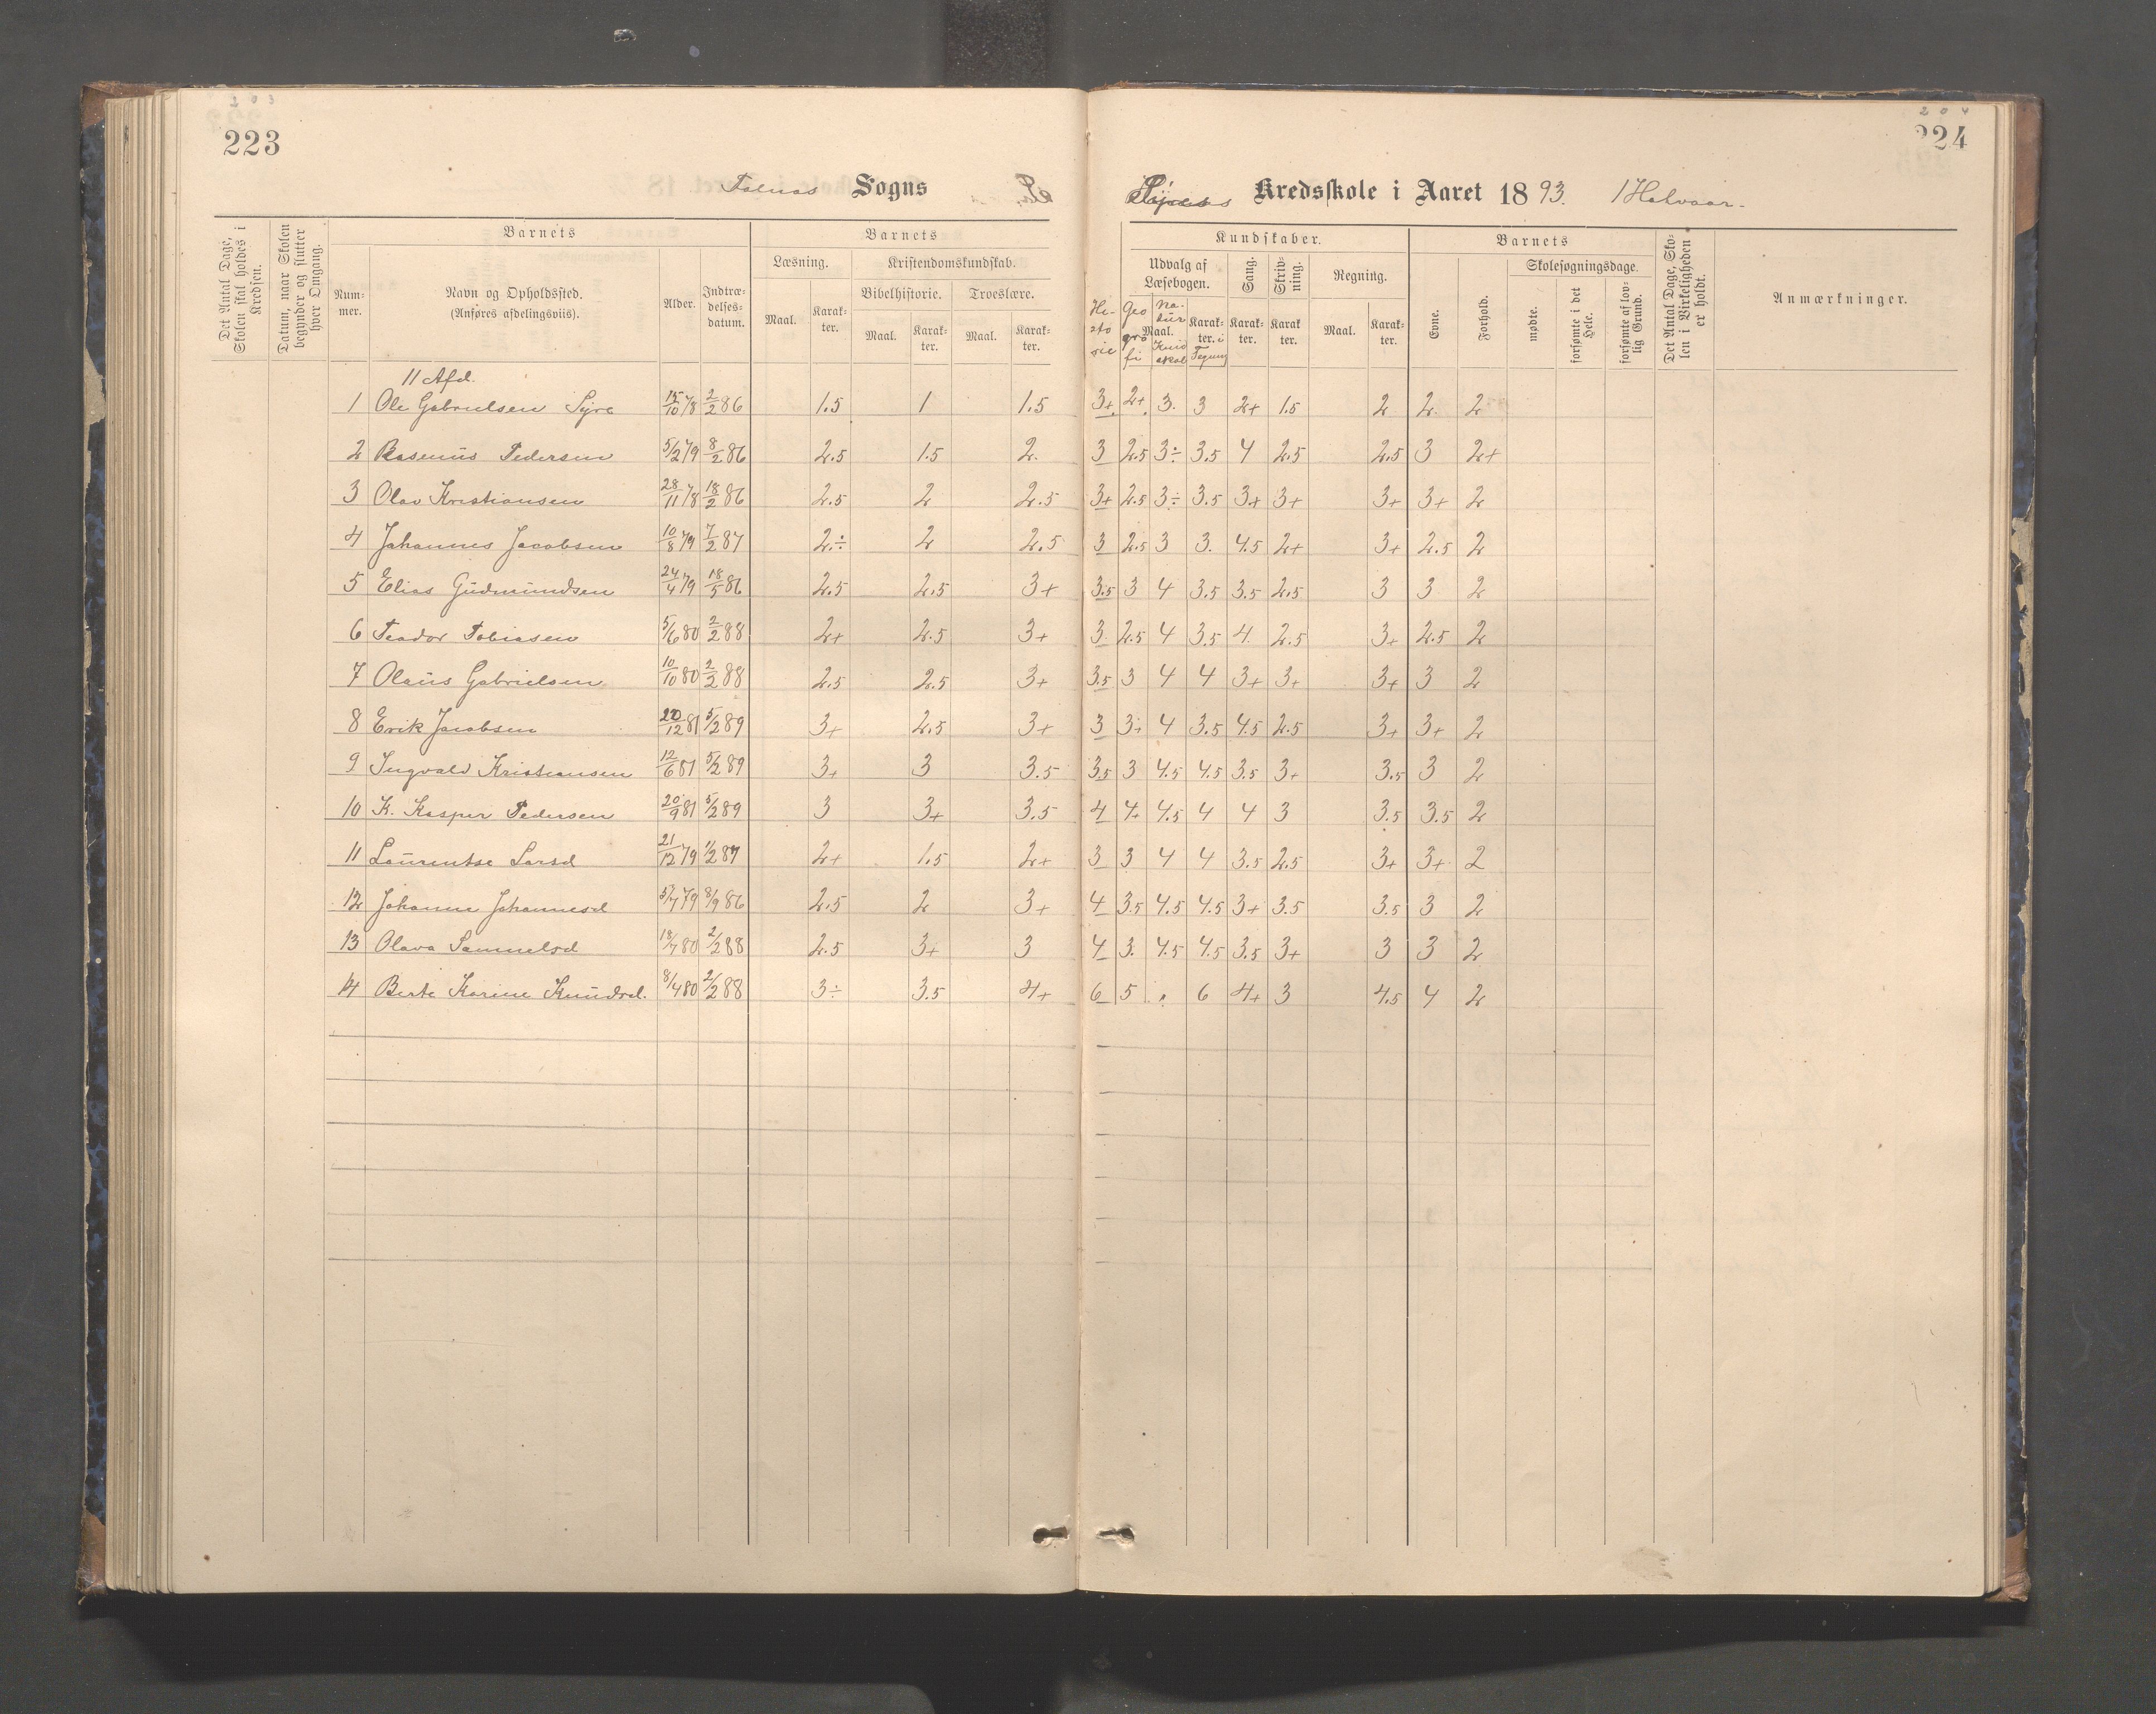 223
204
224
Falnes Sogns
Kredsskole i Aaret 1893. 1 Halvaar.
Det Antal Dage, Skolen skal holdes i Kredsen.
Datum, naar Skolen begynder og slutter hver Omgang.
Barnets
Nummer.
Navn og Opholdssted.
(Anføres afdelingsviis).
Alder.
Indtrædelsesdatum.
Barnets
Læsning.
Maal.
Karakter.
Kristendomskundskab.
Bibelhistorie.
Maal.
Karakter.
Troeslære.
Maal.
Karakter.
Kundskaber.
Historie
Geografi
Udvalg af Læsebogen.
Maal.
Karakter. i Tegning
Sang.
Karakter.
Skrivning.
Karakter.
Regning.
Maal.
Karakter.
Barnets
Evne.
Forhold.
Skolesøgningsdage.
mødte.
forsømte i det Hele.
forsømte af lovlig Grund.
Det Antal Dage, Skolen i Virkeligheden er holdt.
Anmærkninger.
11 Afd.
1 Ole Gabrielsen Syre 15/10 78 2/2 86 1.5 1 1.5 3+ 2+ 3. 3 2+ 1.5 2 2 2
2 Rasmus Pedersen 5/2 79 8/2 86 2.5 1.5 2. 3 2.5 3÷ 3.5 4 2.5 2.5 3 2+
3 Olav Kristiansen 28/11 78 18/2 86 2.5 2 2.5 3+ 2.5 3÷ 3.5 3+ 3+ 3+ 3+ 2
4 Johannes Jacobsen 10/8 79 7/2 87 2.÷ 2 2.5 3 2.5 3 3. 4.5 2+ 3+ 2.5 2
5 Elias Gudmundsen 24/4 79 18/5 86 2.5 2.5 3+ 3.5 3 4 3.5 3.5 2.5 3 3 2
6 Teodor Tobiasen 5/6 80 2/2 88 2+ 2.5 3+ 3 2.5 4 3.5 4. 2.5 3+ 2.5 2
7 Olaus Gabrielsen 10/10 80 2/2 88 2.5 2.5 3+ 3.5 3 4 4 3+ 3+ 3+ 3 2
8 Erik Jacobsen 20/12 81 5/2 89 3+ 2.5 3+ 3 3+ 4 3.5 4.5 2.5 3+ 3+ 2
9 Ingvald Kristiansen 12/6 81 5/2 89 3+ 3 3.5 3.5 3 4.5 4.5 3.5 3+ 3.5 3 2
10 K. Kasper Pedersen 20/9 81 5/2 89 3 3+ 3.5 4 4+ 4.5 4 4 3 3.5 3.5 2
11 Laurentse Larsd 21/12 79 1/2 87 2+ 1.5 2+ 3 3 4 4 3.5 2.5 3+ 3+ 2
12 Johanne Johannesd 5/7 79 8/9 86 2.5 2 3+ 4 3.5 4.5 4.5 3+ 3.5 3.5 3 2
13 Olava Samuelsd 18/7 80 2/2 88 2.5 3+ 3 4 3. 4.5 4.5 3.5 3+ 3 3 2
14 Berte Karine Knudsd. 8/4 80 2/2 88 3÷ 3.5 4+ 6 5 . 6 4+ 3 4.5 4 2